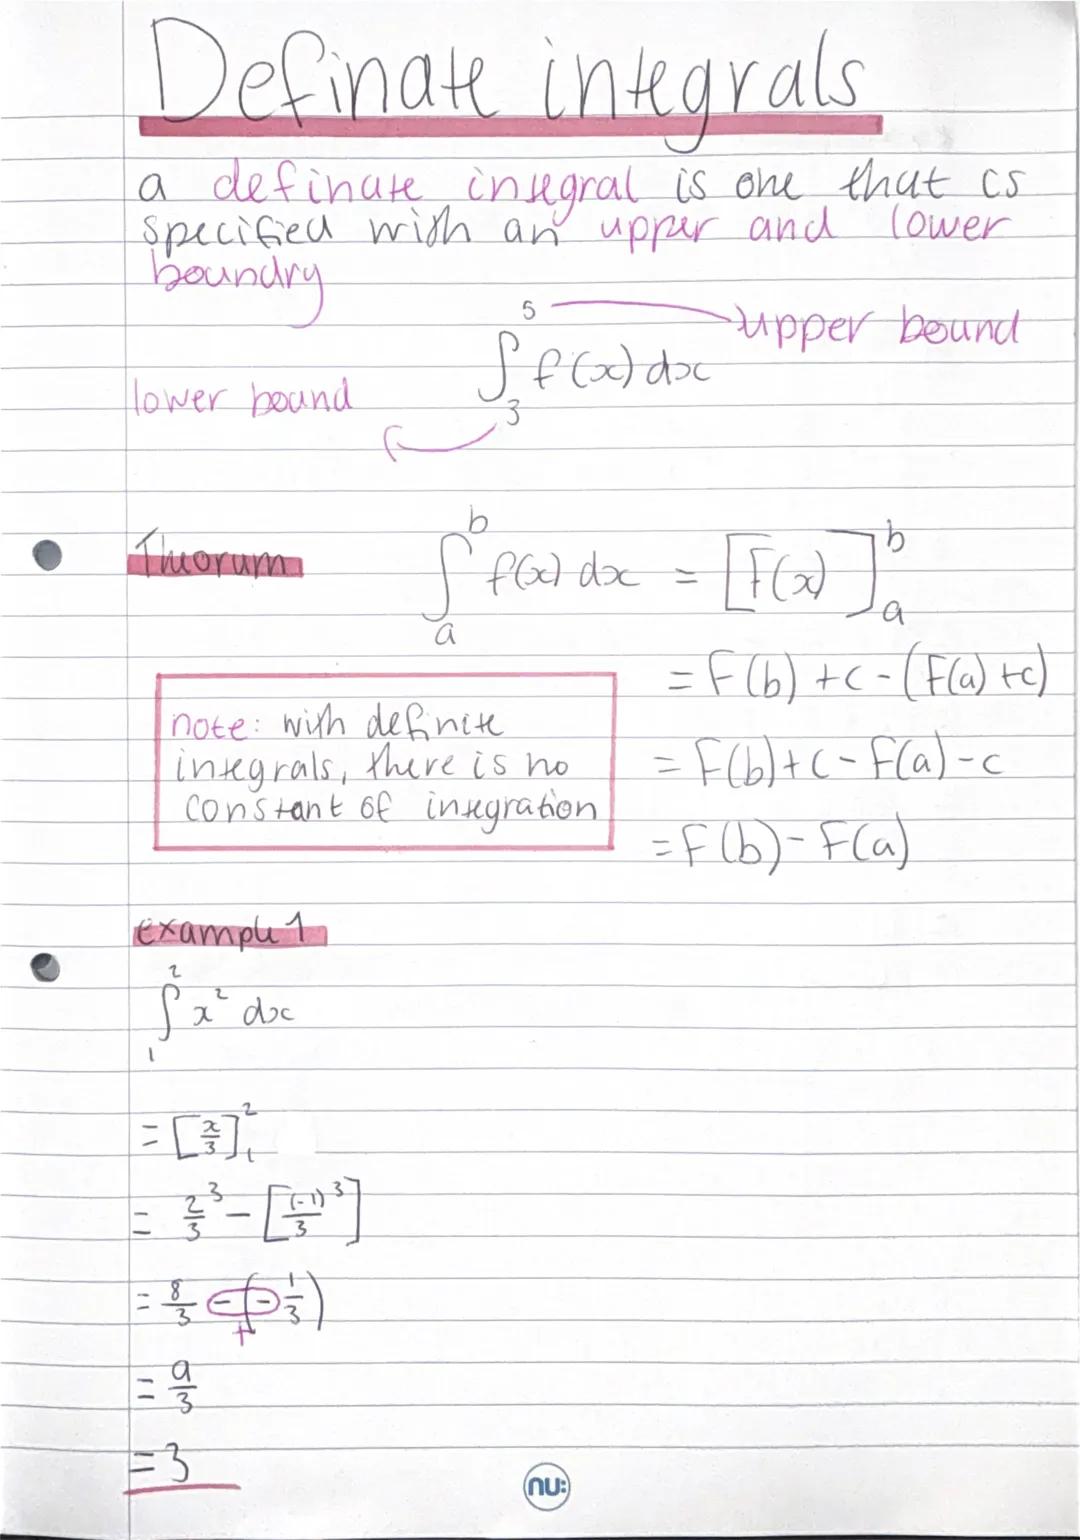 Definate integrals
a definate integral is one that is
specified with an upper and lower
boundry
5
upper bound
∫ f(x) dx
lower bound
3
Theorum
∫ₐᵇ f(x) dx = [F(x)]ₐᵇ
= F(b) + c - (F(a) + c)
note: with definite
integrals, there is no
constant of integration
= F(b) + c - F(a) - c
= F(b) - F(a)
example 1
∫₁² x² dx
= [x/3]₁²
= 2/3³ - [(-1)/3³]
= 8/3 - (-1/3)
+
= 9/3
= 3
nu: